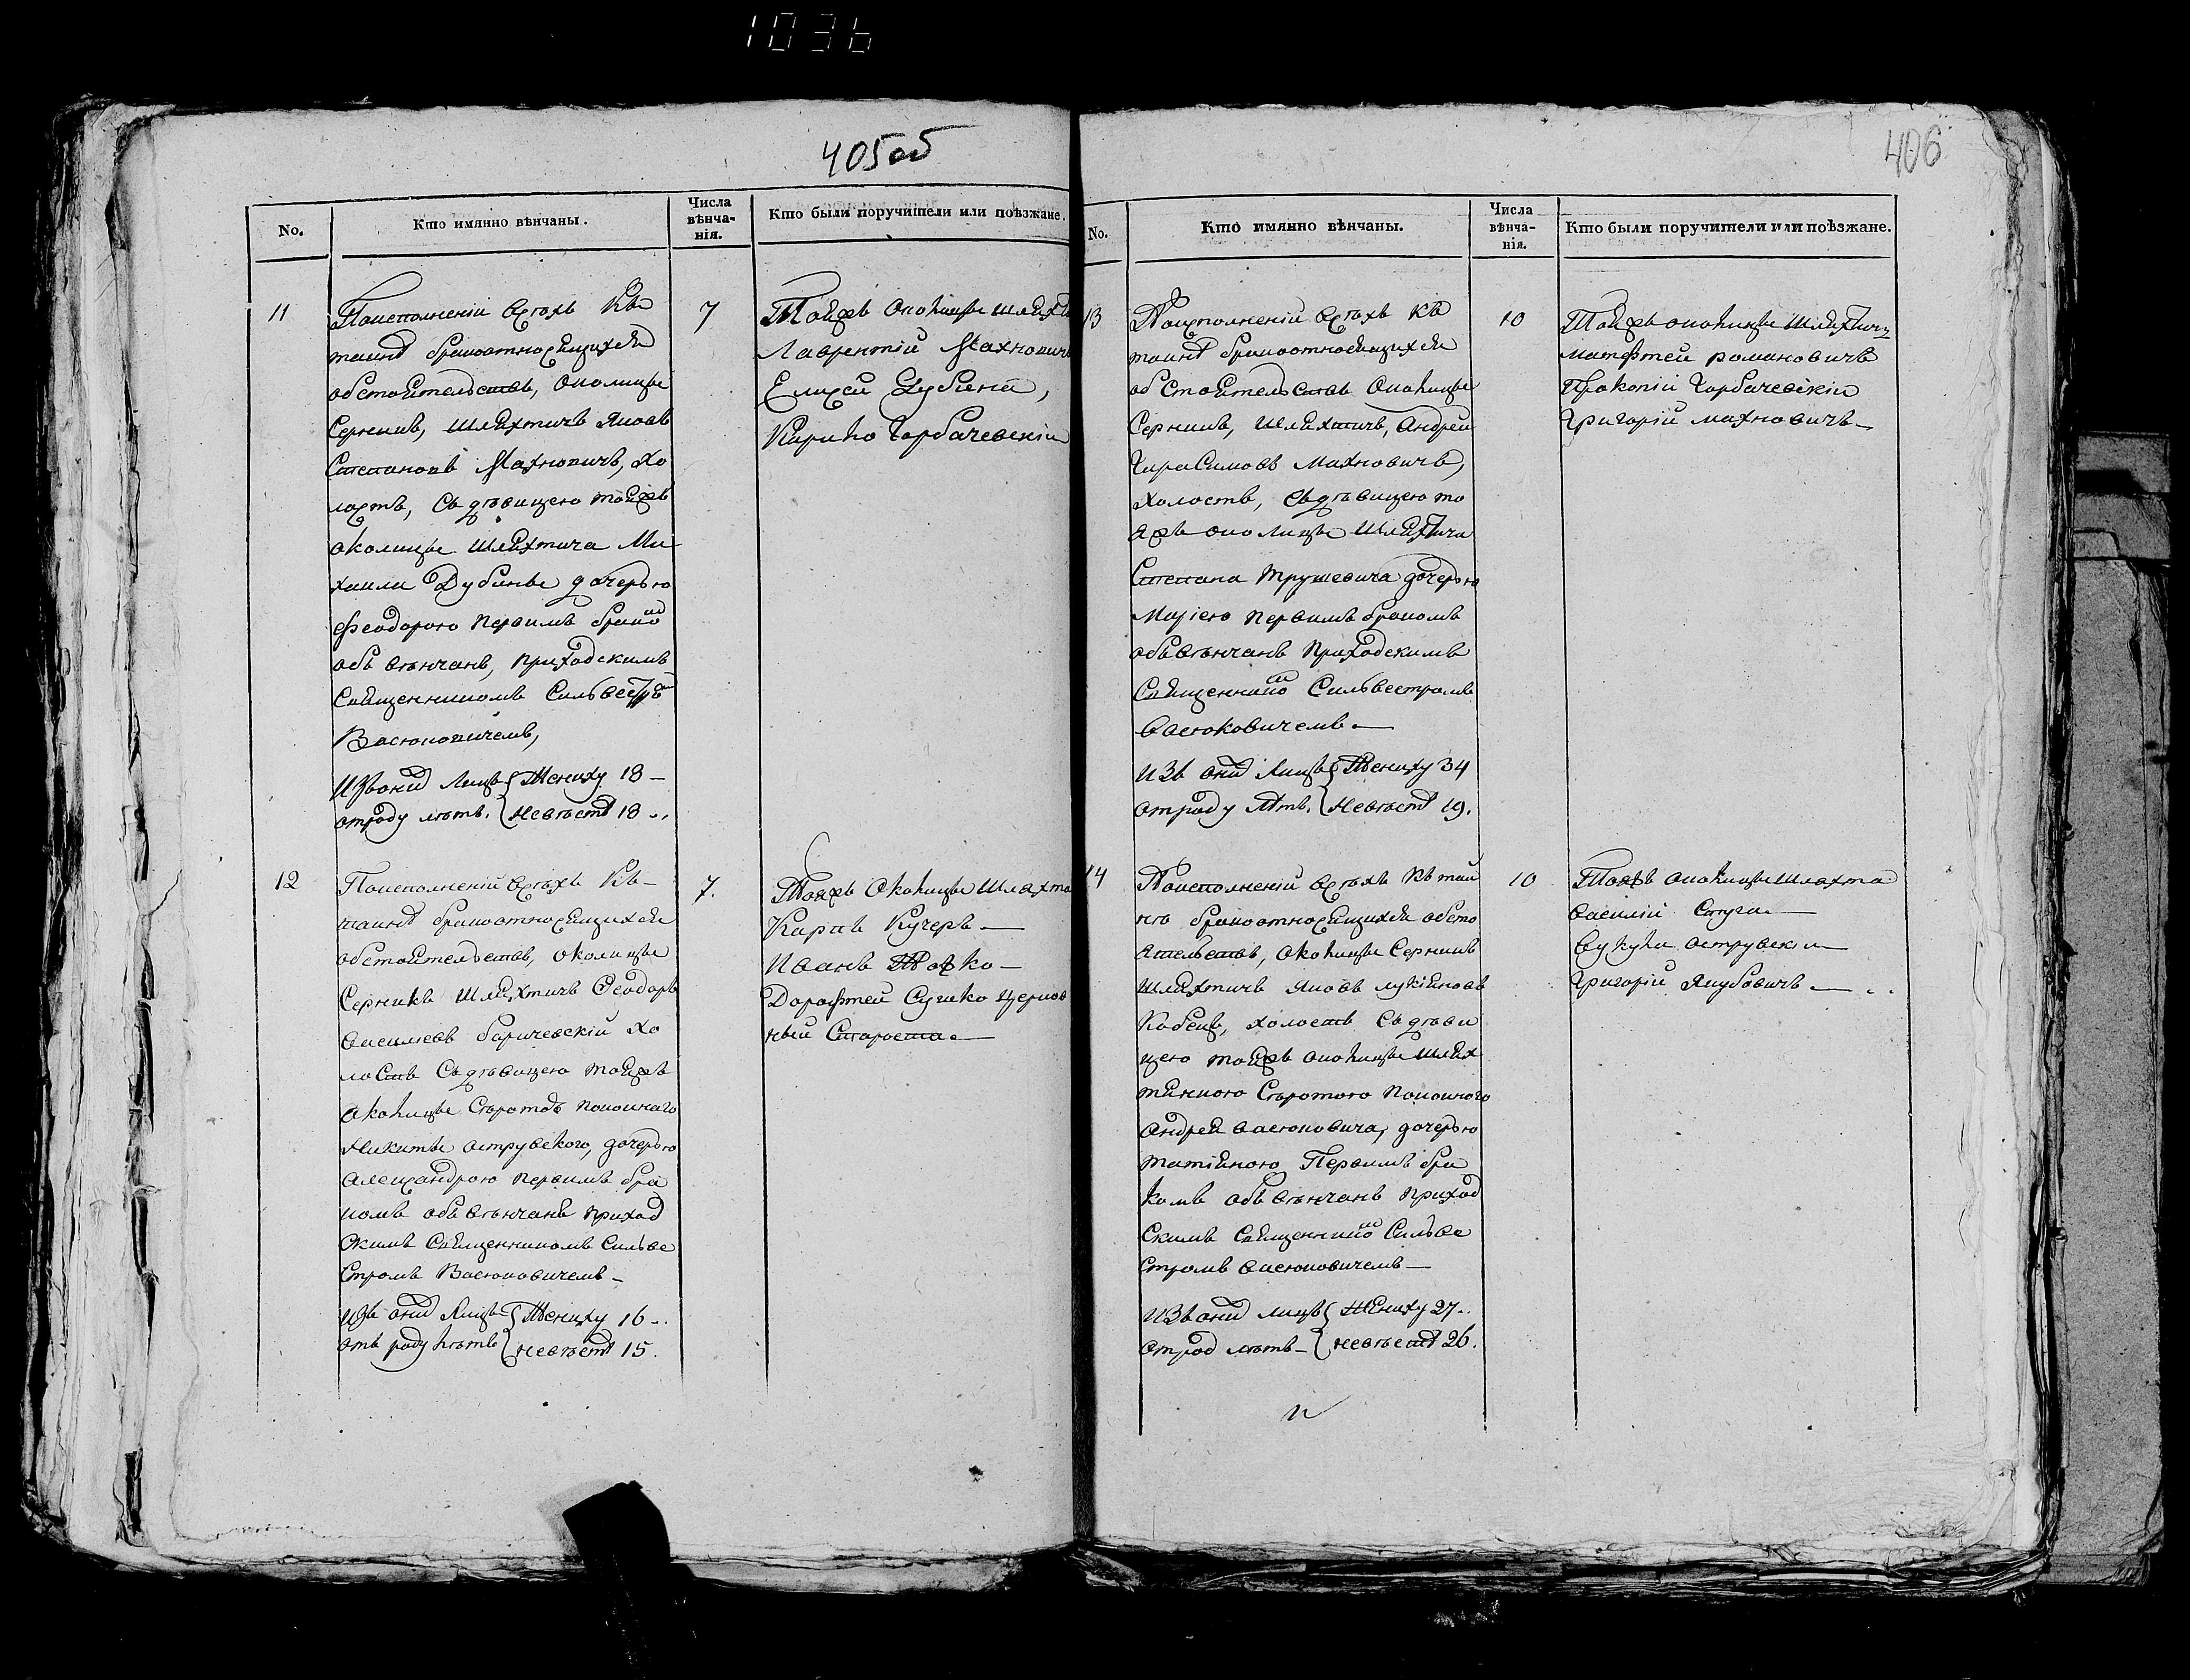 1036
405об
No.
Кто имянно вѣнчаны.
Числа
вѣнча-
нія.
Кто были поручители или поѣзжане.
11
Поисполненіи всѣхъ Къ
таинѣ бракоотносящихся
обстоятельствъ, Околицы
Серникъ, шляхтичъ Яковъ
Степановъ Махновичъ, Хо
лостъ, Съ дѣвицею тояжъ
околицы шляхтича Ми
хаила Дубины дочерью
Феодорою первымъ бракоⷨ
обвѣнчанъ, приходскимъ
Священникомъ Сильвестроⷨ
Васюковичемъ,
Изъ ониⷯ лицъ { Жениху 18 –
отроду лѣтъ. { Невѣстѣ 18 ..
7
Тояжъ околицы шляхта
Лаврентій Махновичъ
Елисей Дубина,
Кирило Горбачевскій
12
Поисполненій всѣхъ Къ –
таинѣ бракоотносящихся
обстоятельствъ, околицы
Серникъ шляхтичъ Феодоръ
Васильевъ баричевскій хо
лостъ Съ дѣвицею тояжъ
околицы покойнаго
Никиты острувского, дочерью
Александрою первымъ бра
комъ обвѣнчанъ приход
скимъ Священникомъ Сильве
стромъ Васюковичемъ –
Изъ ониⷯ лицъ { Жениху 16 –.
отъ роду лѣтъ { невѣстѣ 15.
7.
Тояжъ околицы шляхта
Карпъ Кучеръ —
Иванъ
Дорофтей Сушко церков
ный Староста. —
406
No.
Кто имянно вѣнчаны.
Числа
вѣнча-
нія.
Кто были поручители или поѣзжане.
13
Поисполненій всѣхъ Къ
таинѣ бракоотносящихся
обстоятельствъ Околицы
Серникъ, шляхтичъ, Андрей
Гарасимовъ Махновичъ,
холостъ, съ дѣвицею то
яжъ околицы шляхтича
Степана Трушевича дочерью
Маріею первымъ бракомъ
обвѣнчанъ приходскимъ
Священникоⷨ Сильвестромъ
Васюковичемъ. —
изъ ониⷯ лицъ { Жениху 34
отроду лѣтъ. { Невѣстѣ 19.
10
Тояжъ околицы шляхтичи
матфтей романовичъ
Прокопій Горбачевскій
Григорій махновичъ –
14
Поисполненій всѣхъ Къ таи
нѣ бракоотносящихся обсто
ятельствъ, околицы Серникъ
шляхтичъ Яковъ лукіяновъ
Кобецъ, холостъ Съ дѣви
цею тояжъ околицы шлях
тянкою Сиротою покойного
Андрея Васюковича, дочерью
татіяною Первымъ бра
комъ обвѣнчанъ приход
скимъ Священникоⷨ Сильве
стромъ васюковичемъ —
изъ ониⷯ лицъ { Жениху 27 –.
отрод лѣтъ – { невѣстѣ 26.
10
Тояжъ околицы шляхта
Василій —
острувскій
Григорій Якубовичъ —